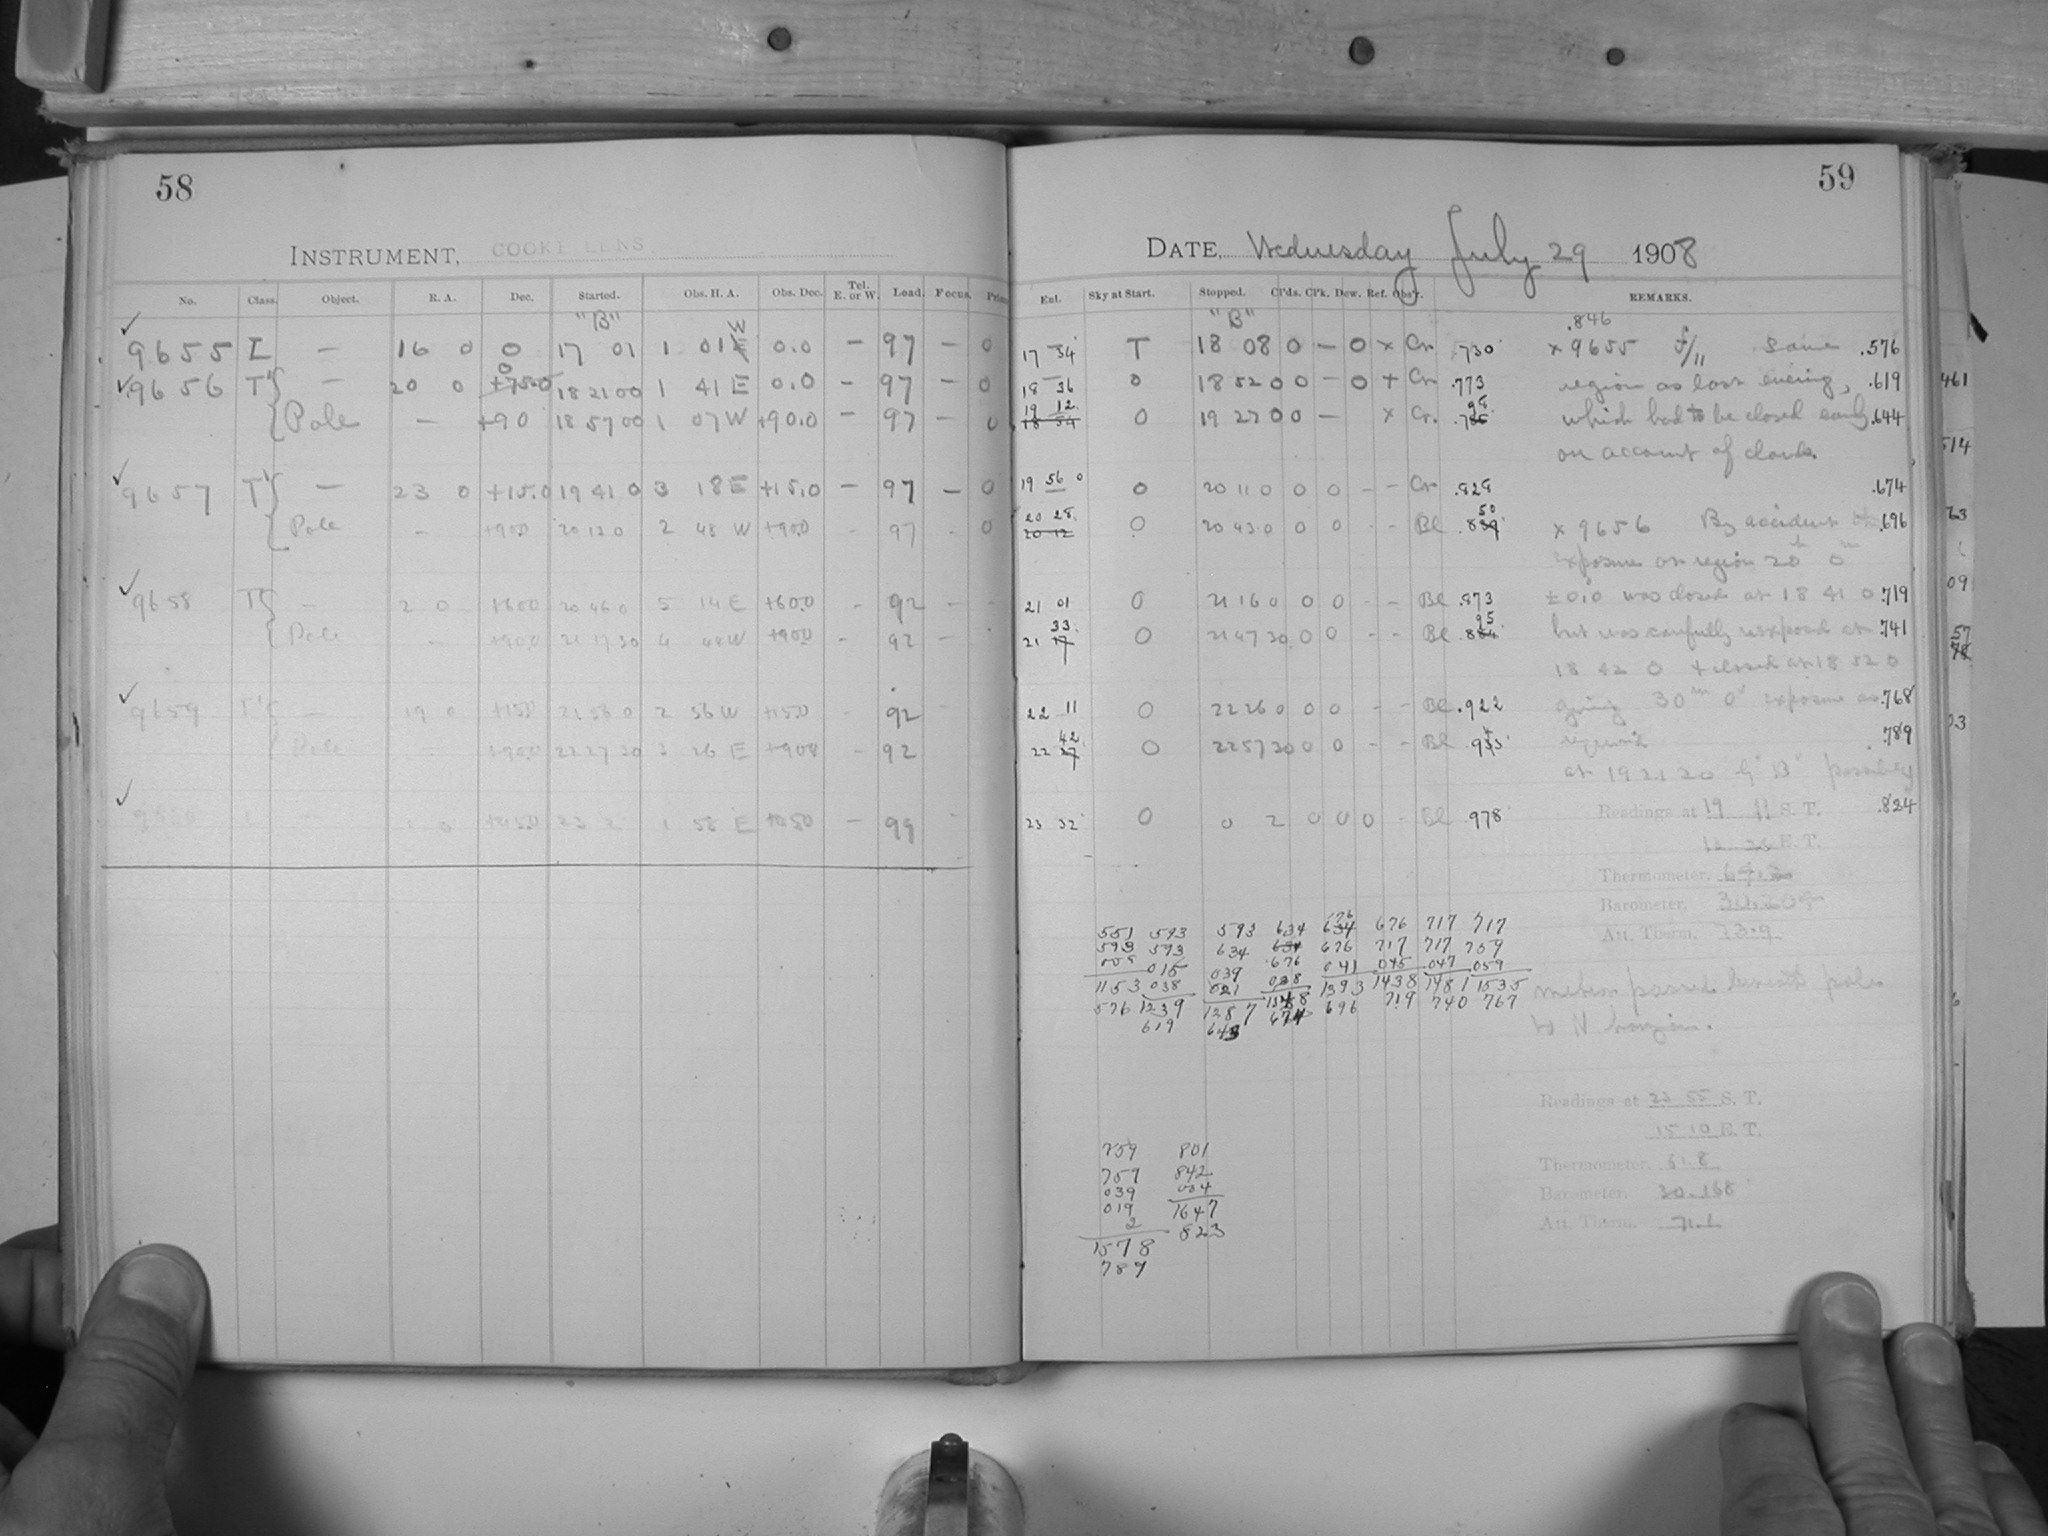 58
INSTRUMENT, COOKE LENS
No. Class. Object. R. A. Dec. Started. Obs. H. A. Obs. Dec. Tel. E. or W. Load. Focus.
"B"
✓ 9655 I — 16 0 0 17 01 1 01 W 0.0 — 97 — 0
✓ 9656 T' { — 20 0 0 +75.0 18 21 00 1 41 E 0.0 — 97 — 0
{ Pole — +90 18 57 00 1 07 W +90.0 — 97 — 0
✓ 9657 T' { — 23 0 +15.0 19 41 0 3 18 E +15.0 — 97 — 0
{ Pole — +90.0 20 12 0 2 48 W +90.0 - 97 - 0
✓ 9658 T' { — 2 0 +60.0 20 46 0 5 14 E +60.0 - 92 - -
{ Pole — +90.0 21 17 30 4 44 W +90.0 - 92 -
✓ 9659 T' { — 19 0 +15.0 21 56 0 2 56 W +15.0 - 92 -
{ Pole — +90.0 22 27 30 3 26 E - 92
✓ — 1 0 23 2 1 58 E — 99 -
59
DATE, Wednesday July 29 1908
Ent. Sky at Start. Stopped. Cl'ds. Cl'k. Dew. Ref. Obs'r. REMARKS.
"B" .846
17 34 T 18 08 0 — 0 x Cr .730 x 9655 f/11 Same .576
18 36 0 18 52 0 0 — 0 + Cr .773 region as last evening, .619
19 12 18 54 0 19 27 0 0 — x Cr. which had to be closed early .644
on account of clouds.
19 56 0 0 20 11 0 0 0 - - Cr .828 .674
20 28 20 12 0 20 43 0 0 0 - - Bl .839 50 x 9656 By accident the .696
exposure on region 20h 0m
21 01 0 21 16 0 0 0 - - Bl .873 ±0.0 was closed at 18 41 0 .719
21 33 17 0 21 47 30 0 0 - - Bl .884 95 but was carefully reexposed at .741
18 42 0 + closed at 18 52 0
22 11 0 22 26 0 0 0 - - Bl .922 giving 30m 0s exposure as .768
22 42 27 0 22 57 30 0 0 - - Bl required .789
at 19 21 20 by "B" possibly
23 32 0 0 2 0 0 0 - Bl .978 Readings at 19 11 S. T. .824
E. T.
Thermometer.
Barometer. 30.209
Att. Therm. 73.9
551 593 593 634 634 676 676 717 717
593 593 634 634 676 717 717 759
009 015 039 .676 041 045 047 059
1153 038 021 038 1393 1438 1481 1535
576 1239 1287 1348 696 719 740 767
619 643 674
meteor passed beneath pole
to N horizon.
Readings at 22 55 S. T.
15 10 E. T.
Thermometer. 61.8
Barometer. 30.168
Att. Therm. 71.1
759 801
759 842
039 004
019 1647
2 823
1578
789